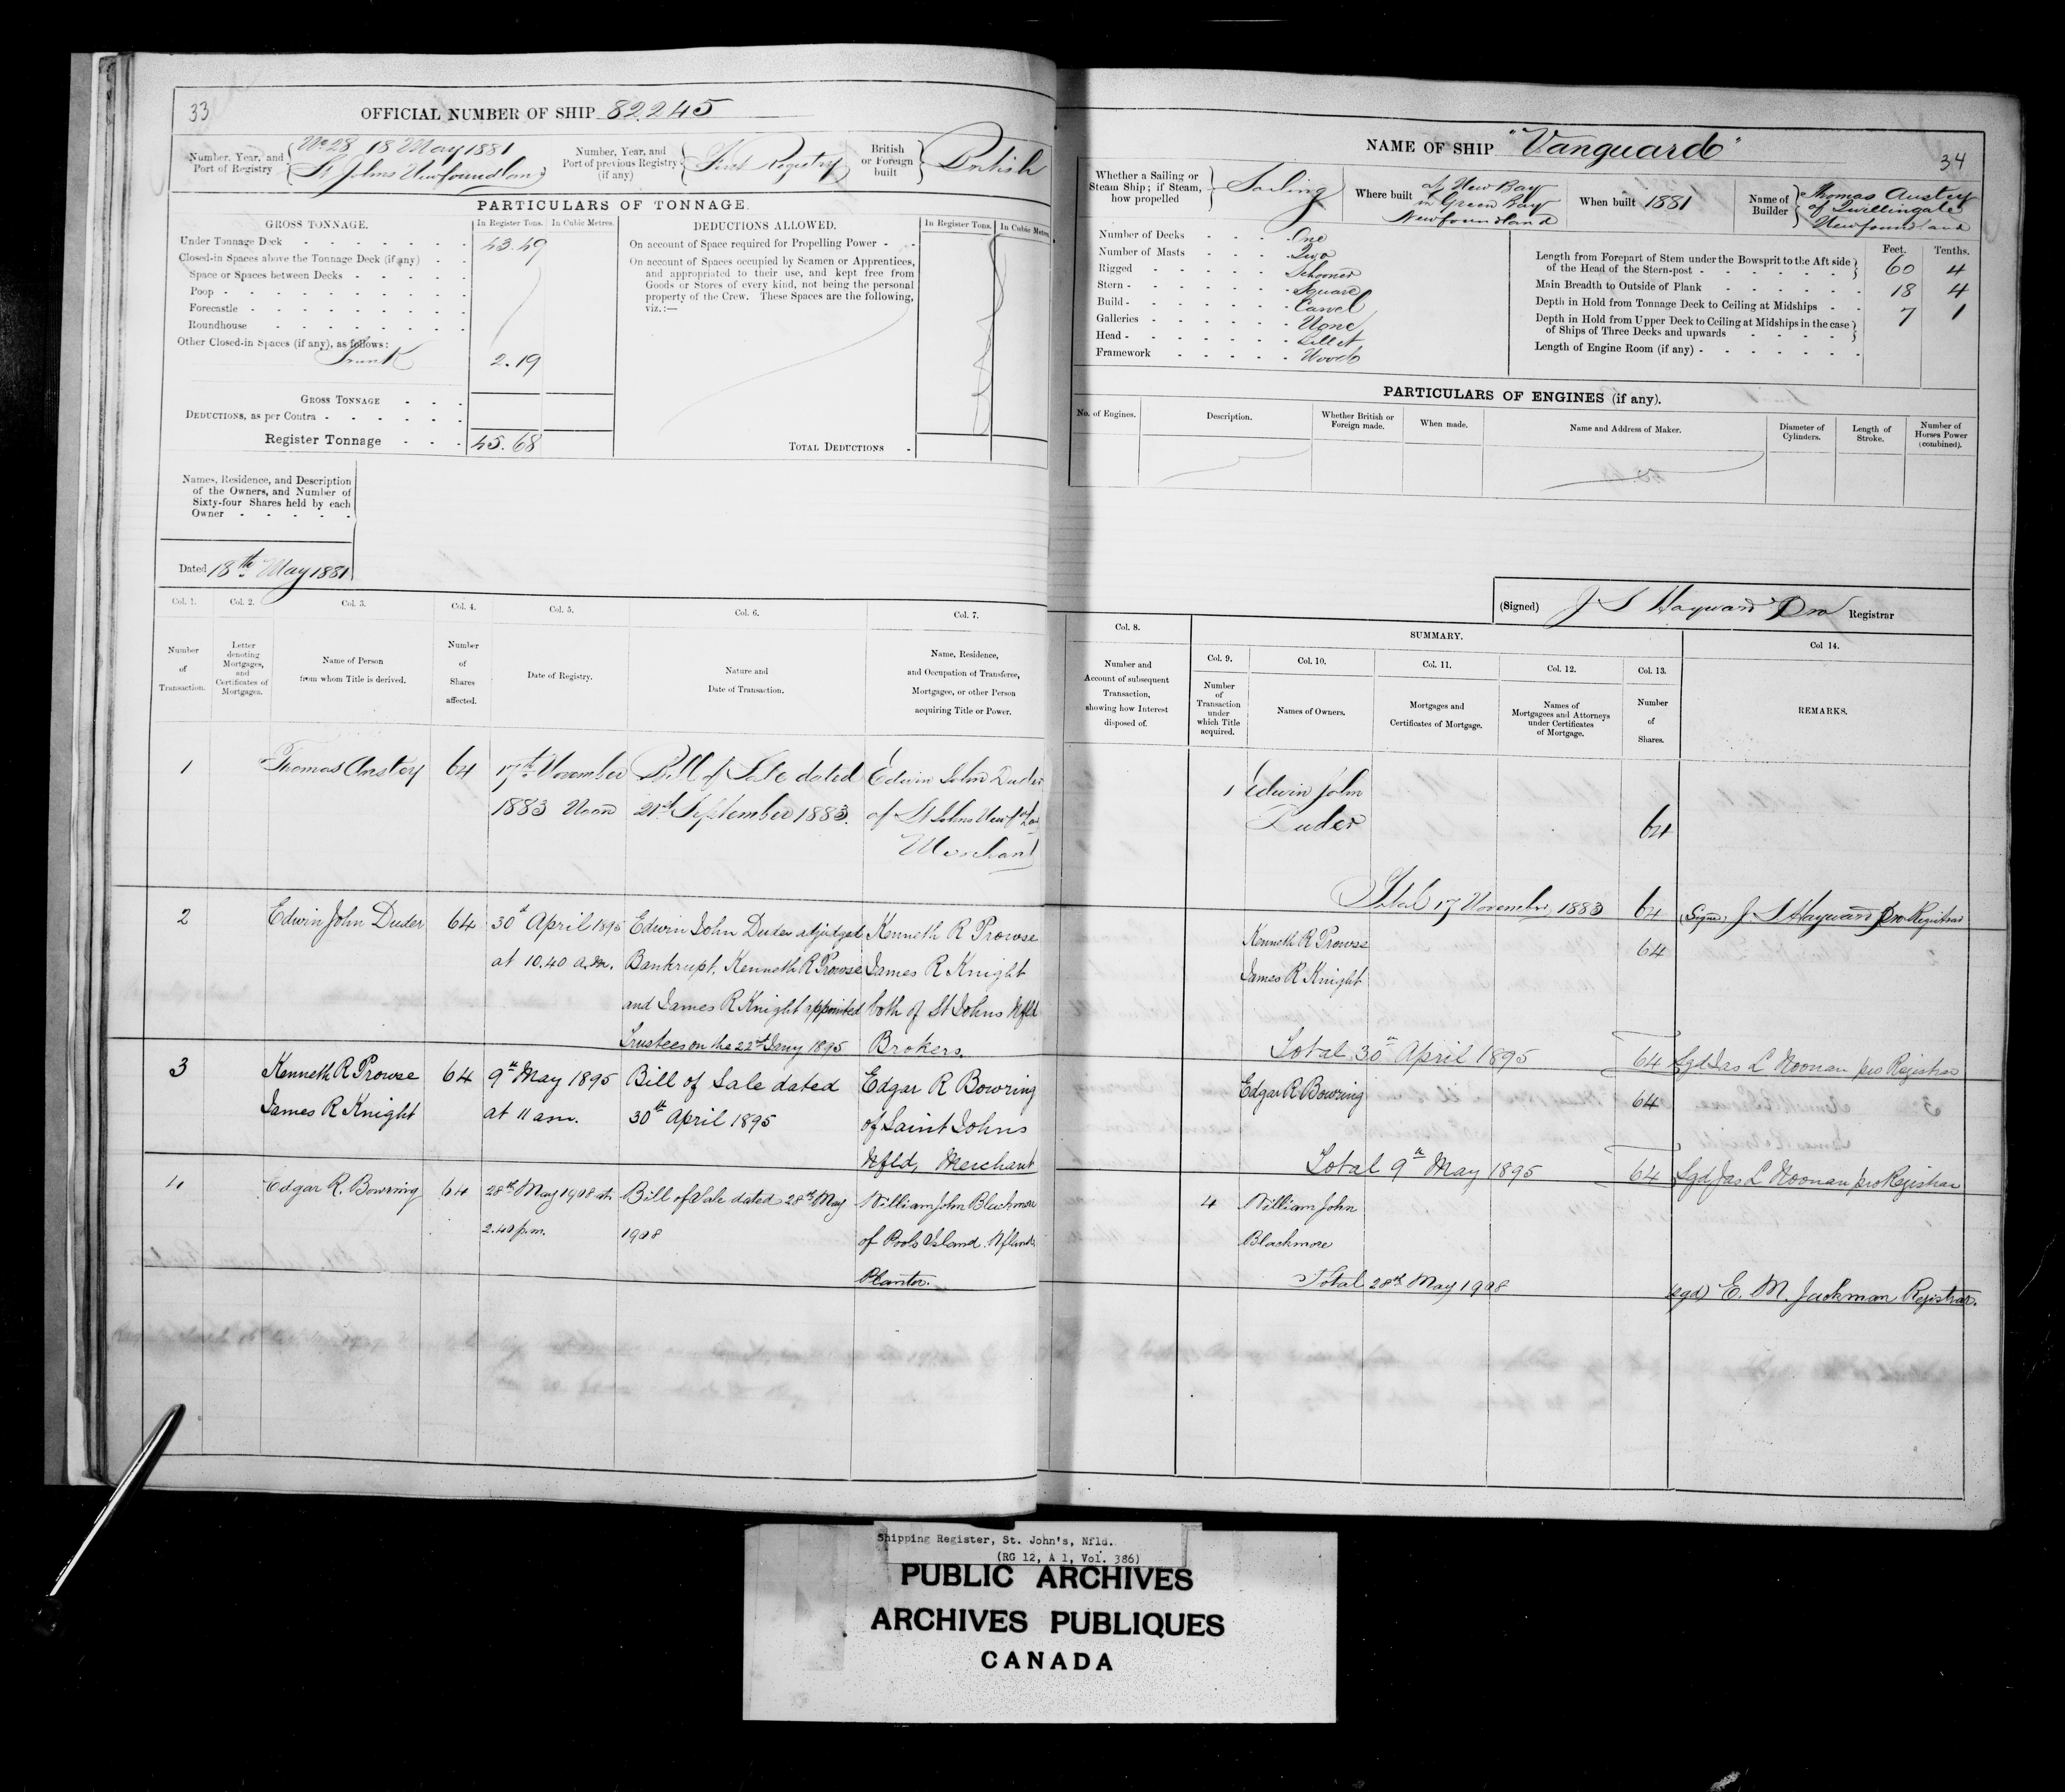 33
OFFICIAL NUMBER OF SHIP 82.245
Number, Year, and Port of Registry
No 28 18 May 1881
St Johns Newfoundland
Number, Year, and Port of previous Registry (if any)
First Registry
British or Foreign built
British
PARTICULARS OF TONNAGE.
GROSS TONNAGE.
In Register Tons.
In Cubic Metres.
DEDUCTIONS ALLOWED.
In Register Tons.
In Cubic Metres.
Under Tonnage Deck 43.49
Closed-in Spaces above the Tonnage Deck (if any)
Space or Spaces between Decks
Poop
Forecastle
Roundhouse
Other Closed-in Spaces (if any), as follows:
Trunk 2.19
GROSS TONNAGE
DEDUCTIONS, as per Contra
Register Tonnage 45.68
On account of Space required for Propelling Power
On account of Spaces occupied by Seamen or Apprentices,
and appropriated to their use, and kept free from
Goods or Stores of every kind, not being the personal
property of the Crew. These Spaces are the following,
viz.:—
TOTAL DEDUCTIONS
Names, Residence, and Description
of the Owners, and Number of
Sixty-four Shares held by each
Owner
Dated 18th May 1881
Col. 1.
Number of Transaction.
Col. 2.
Letter denoting Mortgages, and Certificates of Mortgages.
Col. 3.
Name of Person from whom Title is derived.
Col. 4.
Number of Shares affected.
Col. 5.
Date of Registry.
Col. 6.
Nature and Date of Transaction.
Col. 7.
Name, Residence, and Occupation of Transferee, Mortgagee, or other Person acquiring Title or Power.
1 Thomas Anstey 64 17th November Bill of Sale dated Edwin John Duder
1883 Noon 21st September 1883. of St Johns
Merchant
2 Edwin John Duder 64 30th April 1895 Edwin John Duder adjudged Kenneth R Prowse
at 10.40 a.m. Bankrupt, Kenneth R Prowse James R Knight
and James R Knight appointed both of St Johns Nfld
Trustees on the 22nd Jany 1895 Brokers.
3 Kenneth R Prowse 64 9th May 1895 Bill of Sale dated Edgar R Bowring
James R Knight at 11 am. 30th April 1895 of Saint Johns
Nfld, Merchant
4 Edgar R. Bowring 64 28th May 1908 at Bill of Sale dated 28th May William John Blackmore
2.40 p.m. 1908 of Pools Island Nfland
Planter.
NAME OF SHIP "Vanguard"
34
Whether a Sailing or Steam Ship; if Steam, how propelled
Sailing
Where built
at New Bay
in Green Bay
Newfoundland
When built 1881
Name of Builder
Thomas Anstey
of Twillingate
Newfoundland
Number of Decks One
Number of Masts Two
Rigged Schooner
Stern Square
Build Carvel
Galleries None
Head Billet
Framework Wood
Feet. Tenths.
Length from Forepart of Stem under the Bowsprit to the Aft side of the Head of the Stern-post 60 4
Main Breadth to Outside of Plank 18 4
Depth in Hold from Tonnage Deck to Ceiling at Midships 7 1
Depth in Hold from Upper Deck to Ceiling at Midships in the case of Ships of Three Decks and upwards
Length of Engine Room (if any)
PARTICULARS OF ENGINES (if any).
No. of Engines.
Description.
Whether British or Foreign made.
When made.
Name and Address of Maker.
Diameter of Cylinders.
Length of Stroke.
Number of Horses Power (combined).
(Signed) J S Hayward Pro Registrar
Col. 8.
Number and Account of subsequent Transaction, showing how Interest disposed of.
SUMMARY.
Col. 9.
Number of Transaction under which Title acquired.
Col. 10.
Names of Owners.
Col. 11.
Mortgages and Certificates of Mortgage.
Col. 12.
Names of Mortgagees and Attorneys under Certificates of Mortgage.
Col. 13.
Number of Shares.
Col 14.
REMARKS.
1 Edwin John
Duder 64
Total 17 November 1883 64 (Signed) J S Hayward Pro Registrar
Kenneth R Prowse 64
James R Knight
Total 30th April 1895 64 Sgd Jas L Noonan pro Registrar
Edgar R Bowring 64
Total 9th May 1895 64 Sgd Jas L Noonan pro Registrar
4 William John
Blackmore
Total 28th May 1908 (sgd) E. M. Jackman Registrar.
Shipping Register, St. John's, Nfld.
(RG 12, A 1, Vol. 386)
PUBLIC ARCHIVES
ARCHIVES PUBLIQUES
CANADA